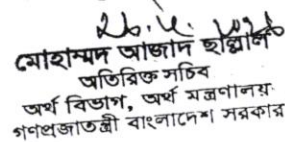 মোহাম্মদ আজাদ ছাল্লাল
অতিরিক্ত সচিব
অর্থ বিভাগ, অর্থ মন্ত্রণালয়
গণপ্রজাতন্ত্রী বাংলাদেশ সরকার